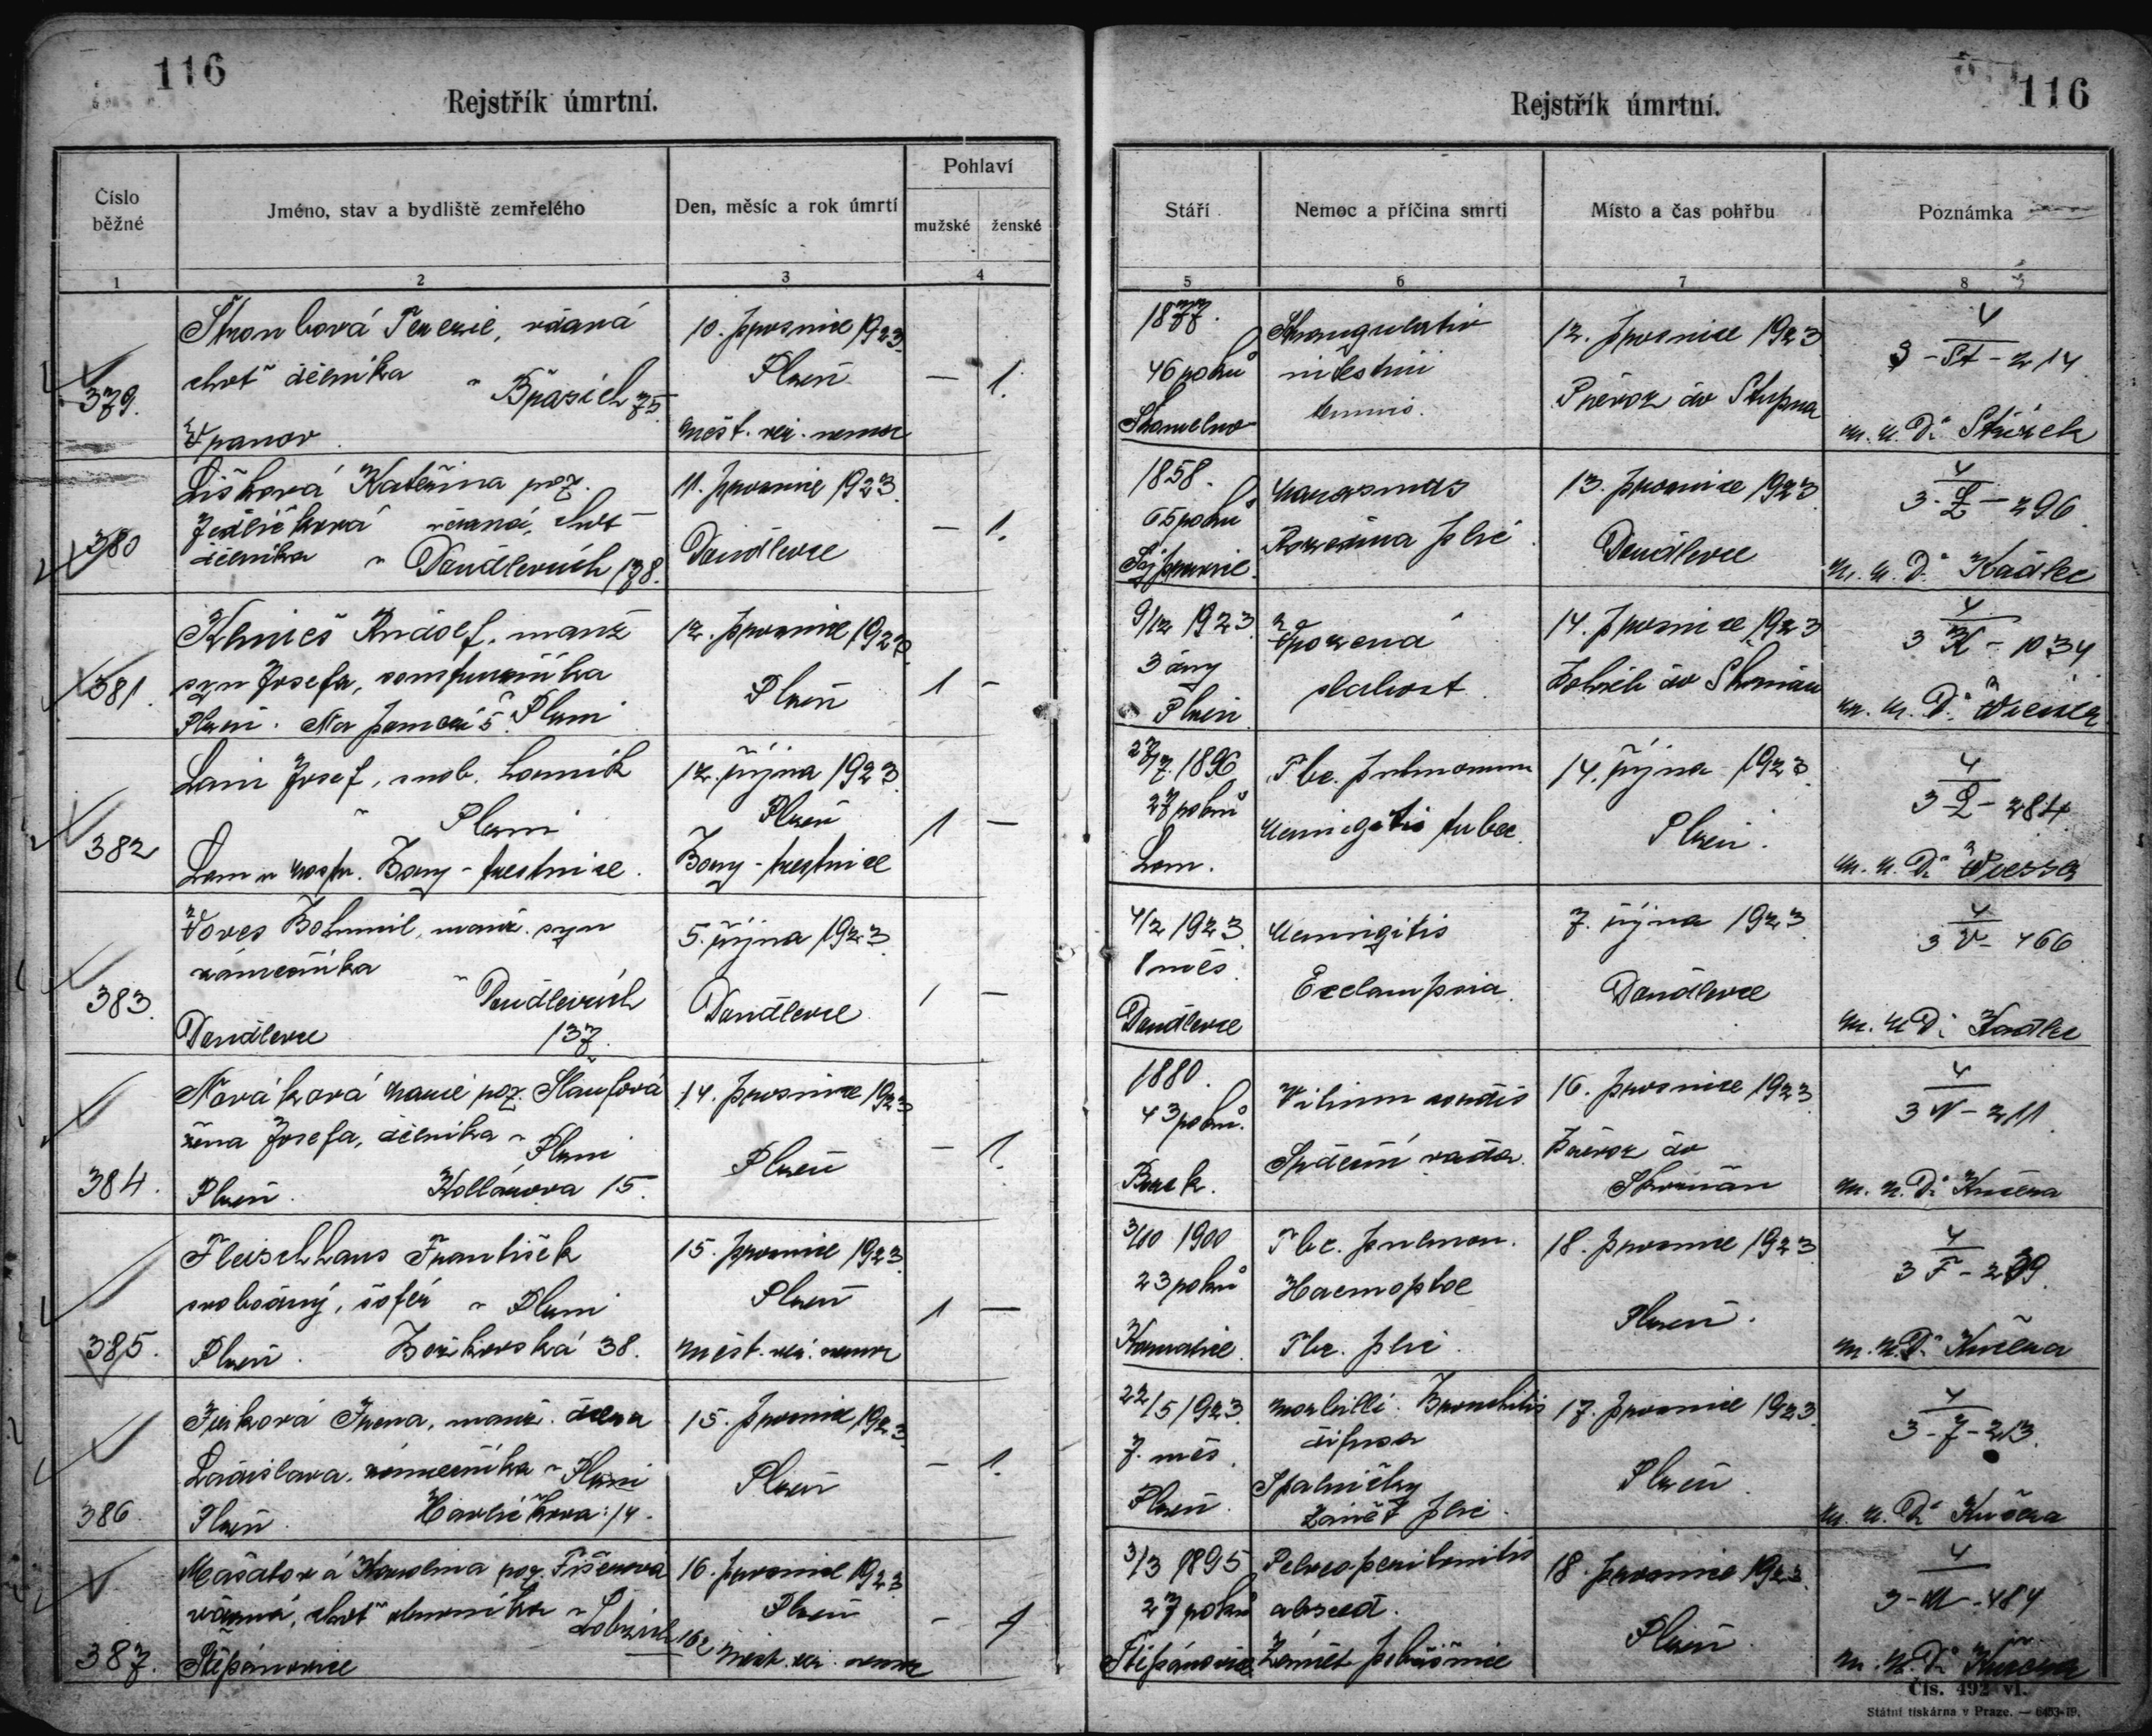 116
Rejstřík úmrtní.
Číslo běžné
Jméno, stav a bydliště zemřelého
Den, měsíc a rok úmrtí
Pohlaví
mužské
ženské
1
2
3
4
379.
Štrombová Terezie, vdaná
choť dělníka
v Břasích 75
Vranov
10. prosince 1923
Plzeň
měst. veř. nemoc
— 1.
380
Lišková Kateřina roz.
Jedličková vdaná, choť
dělníka v Doudlevcích 138.
11. prosince 1923
Doudlevce
— 1.
381.
Klimeš Rudolf, manž
syn Josefa,
Plzeň. Na 5 v Plzni
12. prosince 1923
Plzeň
1 —
382
Lani Josef, svob. horník
v Plzni
Lom u Bory - trestnice.
12. října 1923
Plzeň
Bory - trestnice
1 —
383.
Voves Bohumil, manž. syn
zámečníka
v Doudlevcích
Doudlevce 137.
5. října 1923
Doudlevce
1 —
384.
Nováková Marie roz.
žena Josefa, dělníka v Plzni
Plzeň. Kollárova 15.
14. prosince 1923
Plzeň
— 1.
385.
Fleischhans František
svobodný, šofér v Plzni
Plzeň. Božkovská 38.
15. prosince 1923
Plzeň
měst. veř. nemoc
1 —
386.
Jirková Irena, manž. dcera
Ladislava, zámečníka v Plzni
Plzeň. Havlíčkova 14.
15. prosince 1923
Plzeň
— 1.
387.
Mašatová Karolina roz. Fišerova
vdaná, choť v Lobzích 162
Štěpánovice
16. prosince 1923
Plzeň
měst. veř. nemoc
— 1
116
Rejstřík úmrtní.
Stáří
Nemoc a příčina smrti
Místo a čas pohřbu
Poznámka
5
6
7
8
1877.
46 roků
Strangulatio
intestini
tenuis.
12. prosince 1923
Převoz do Stupna
4
3 - St - 214
M. U. Dr
1858.
65 roků
Marasmus
Rozedma plic
13. prosince 1923
Doudlevce
4
3 - L - 296
M. U. Dr Kadlec
9/12 1923
3 dny
Plzeň
Vrozená
slabost.
14. prosince 1923
4
3 K - 1034
M. U. Dr
27/7. 1896
27 roků
Lom.
Tbc. pulmonum
Meningitis tuberc.
14. října 1923
Plzeň.
4
3 L - 284
M. U. Dr
4/2 1923
8 měs.
Doudlevce
Meningitis
Eclampsia.
7. října 1923
Doudlevce
4
3 V - 466
M. U. Dr Kadlec
1880.
43 roků.
Vitium cordis
Srdeční vada.
16. prosince 1923
Převoz do
4
3 N - 211
M. U. Dr Kučera
3/10 1900
23 roků
Tbc. pulmon.
Haemoptoe
Tbc. plic.
18. prosince 1923
Plzeň.
4
3 F - 239
M. U. Dr Kučera
22/5 1923.
7. měs.
Plzeň.
Morbilli. Bronchitis
difusa
Spalničky
Zánět plic.
17. prosince 1923
Plzeň.
4
3 - J - 213.
M. U. Dr Kučera
3/3 1895
27 roků
Štěpánovice
Pelveoperitonitis
absced.
Zánět pobřišnice
18. prosince 1923.
Plzeň.
4
3 - M - 484
M. U. Dr Kučera
Čís. 492 vl.
Státní tiskárna v Praze. — 6493-19.